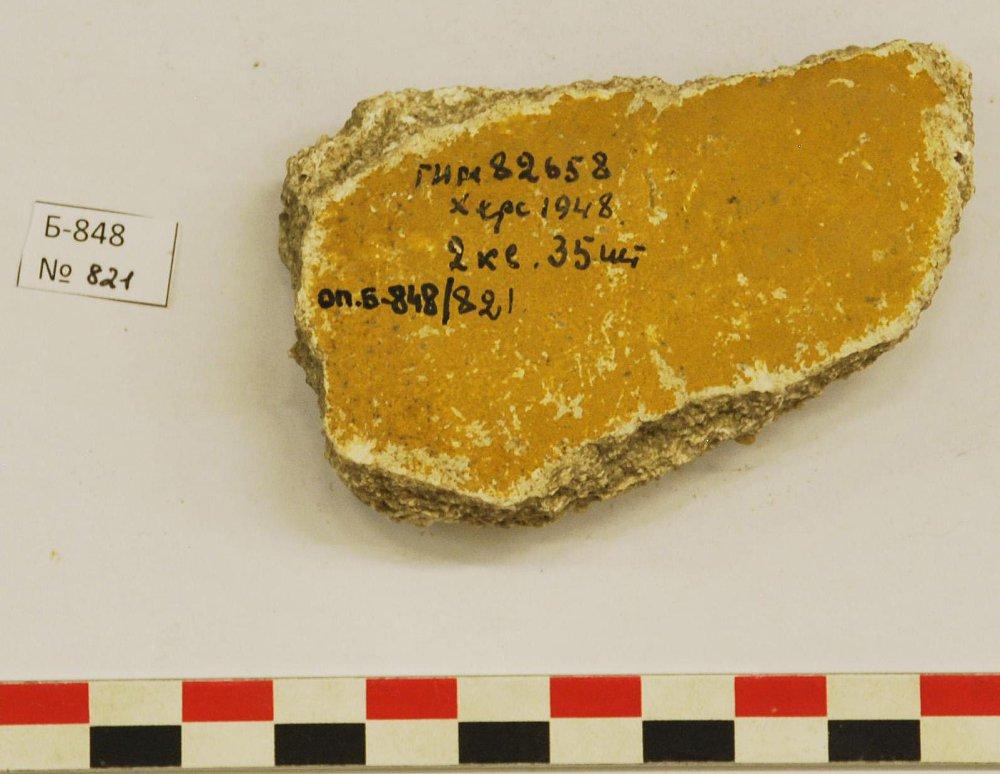 Б-848
№ 821
ГИМ 82658
Херс 1948
2 кв. 35 шт
оп.Б-848/821